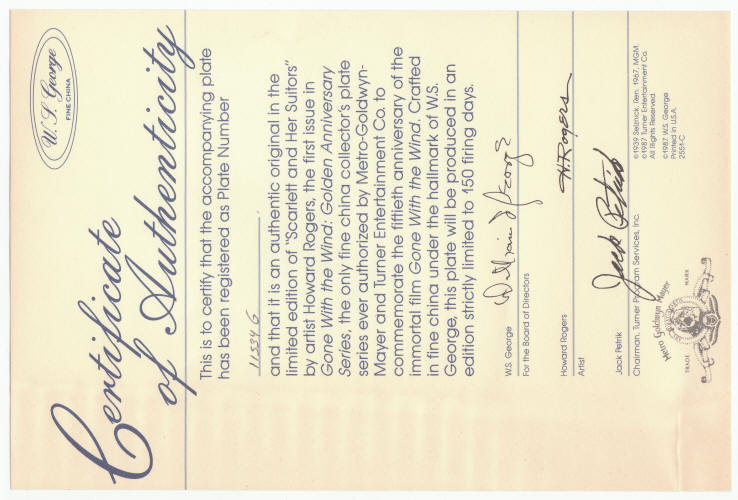 W. S. George
FINE CHINA
Certificate
of Authenticity
This is to certify that the accompanying plate
has been registered as Plate Number
11534 G
and that it is an authentic original in the
limited edition of "Scarlett and Her Suitors"
by artist Howard Rogers, the first issue in
Gone With the Wind: Golden Anniversary
Series, the only fine china collector's plate
series ever authorized by Metro-Goldwyn-
Mayer and Turner Entertainment Co. to
commemorate the fiftieth anniversary of the
immortal film Gone With the Wind. Crafted
in fine china under the hallmark of W.S.
George, this plate will be produced in an
edition strictly limited to 150 firing days.
William S George
W.S. George
For the Board of Directors
H. Rogers
Howard Rogers
Artist
Jack Petrik
Jack Petrik
Chairman, Turner Program Services, Inc.
Metro Goldwyn Mayer
TRADE MARK
©1939 Selznick. Ren. 1967, MGM.
©1987 Turner Entertainment Co.
All Rights Reserved.
©1987 W.S. George
Printed in U.S.A.
2551-C